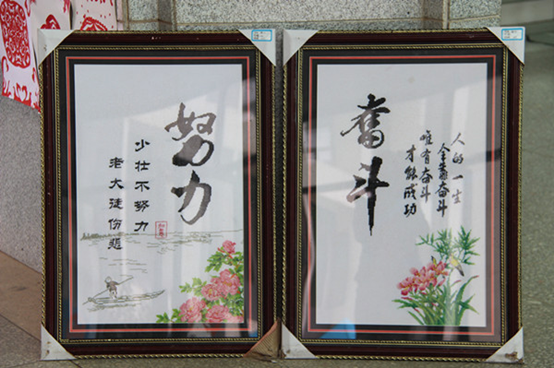 努力
少壮不努力
老大徒伤悲
奮斗
人的一生
全靠奋斗
唯有奋斗
才能成功